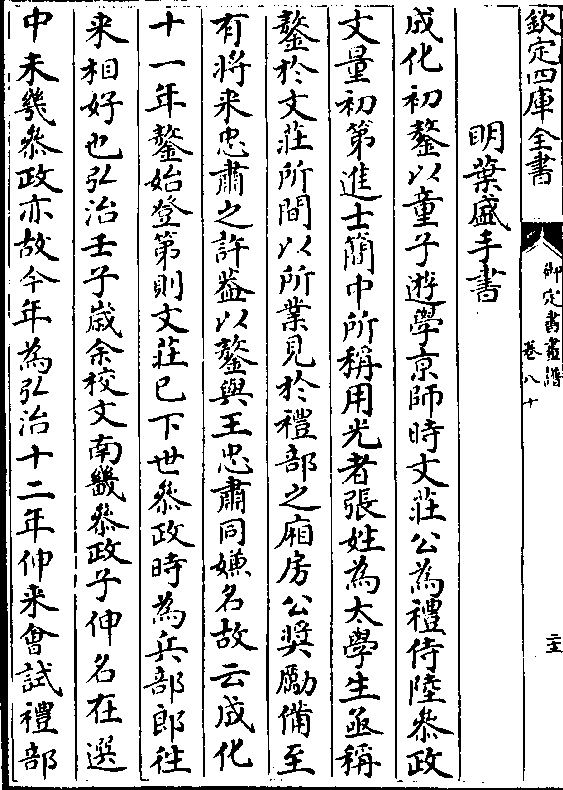 欽定四庫全書
御定書畫譜
卷八十
二十五
明葉盛手書
成化初鏊以童子遊學京師時文莊公為禮侍陸叅政
文量初第進士簡中所稱用光者張姓為太學生亟稱
鏊於文莊所間以所業見於禮部之廂房公奬勵備至
有將來忠肅之許葢以鏊與王忠肅同嫌名故云成化
十一年鏊始登第則文莊已下世叅政時為兵部郎往
來相好也弘治壬子嵗余校文南畿叅政子伸名在選
中未㡬叅政亦故今年為弘治十二年伸来㑹試禮部